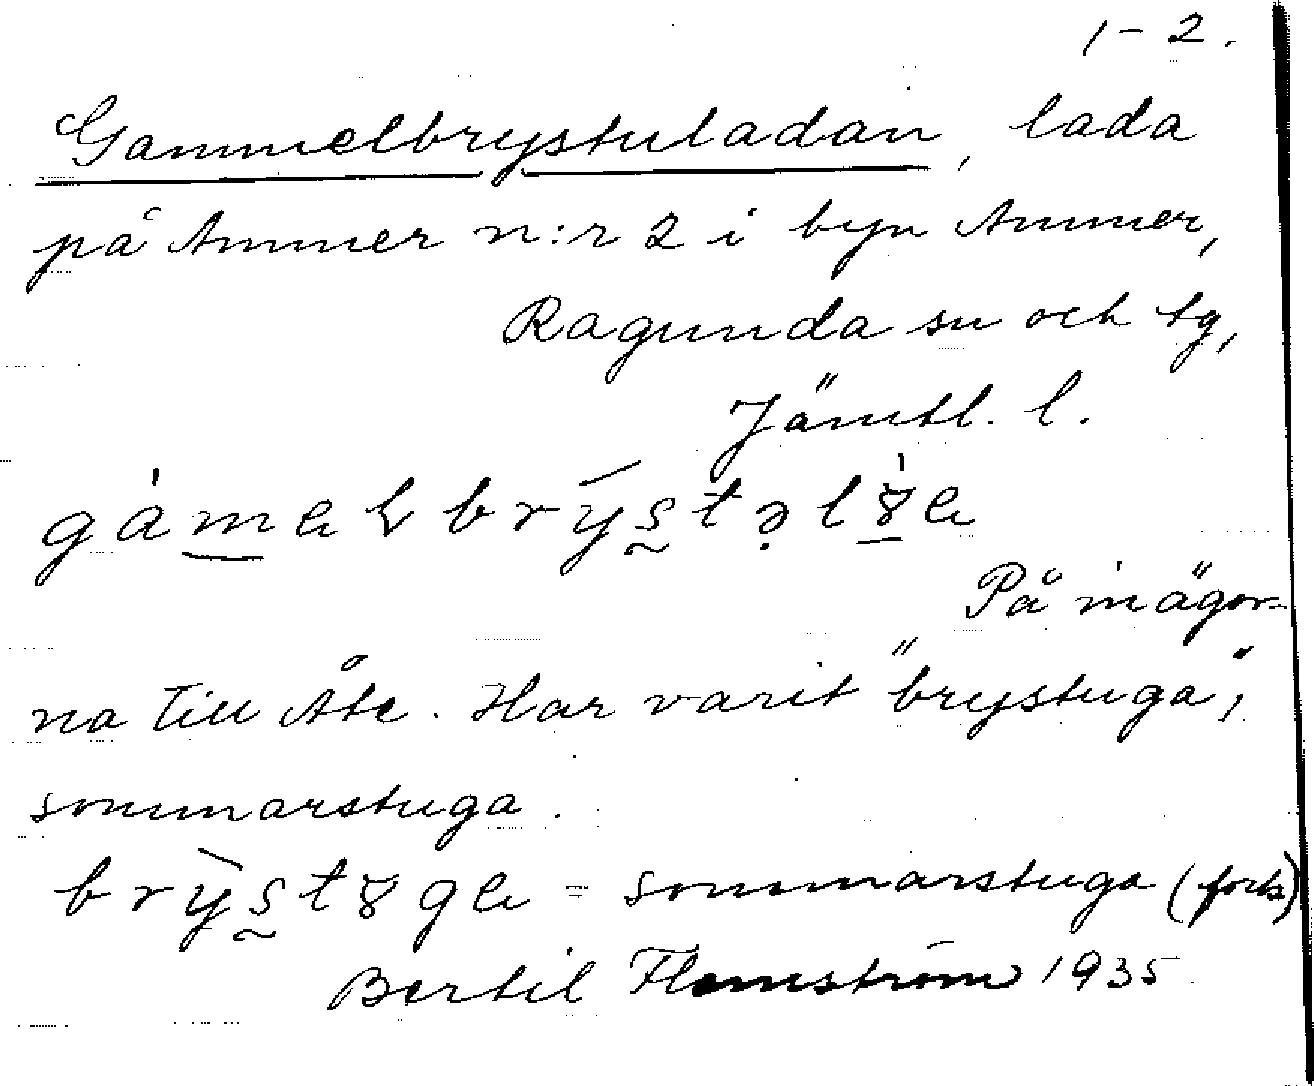 1-2.
Gammelbrystuladan, lada
på Ammer n:r 2 i byn Ammer,
Ragunda sn och tg,
Jämtl. l.
På inägor-
na till Åte. Har varit "brystuga",
sommarstuga.
= sommarstuga (forts)
Bertil Flemström 1935